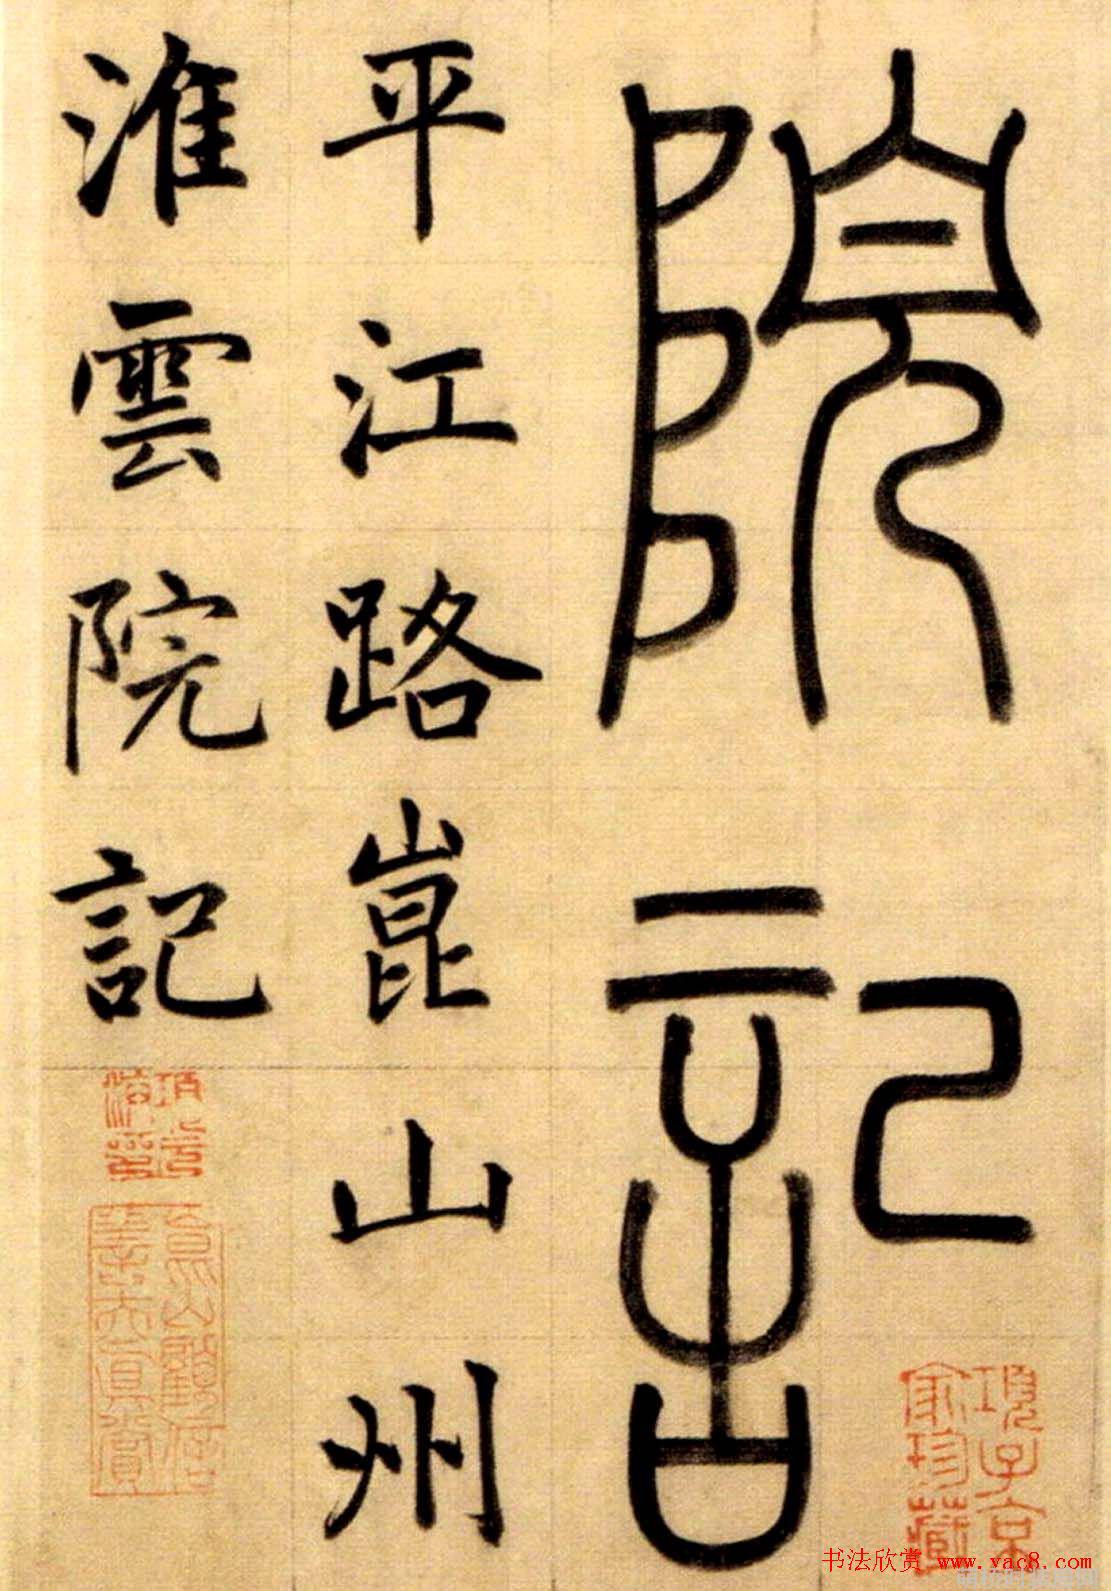 院記
平江路崑山州
淮雲院記
項子京家珍藏
書法欣赏 www.yac8.com